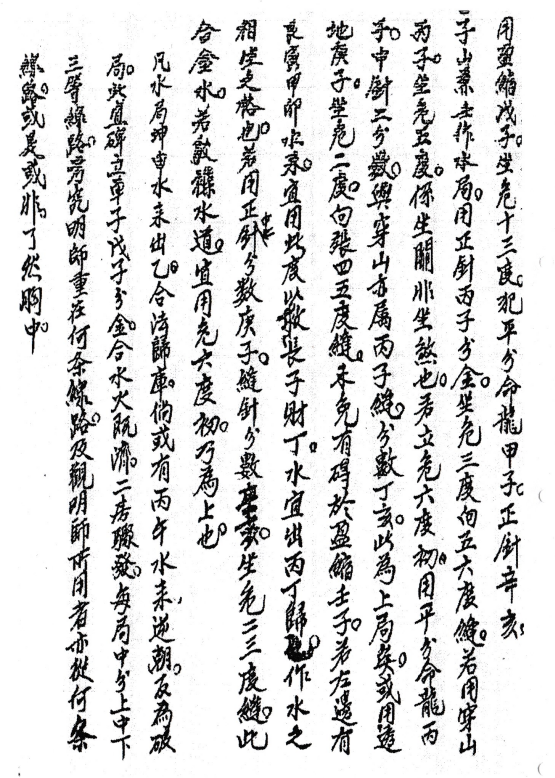 用盈縮戊子。坐危十三度。犯平分命龍甲子。正針辛亥。
子山兼壬作水局。用正針丙子分金。坐危三度向五六度縫。若用穿山
丙子。坐危五度。係坐關非坐煞也。若立危六度初。用平分命龍丙
子。中針三分數與穿山亦屬丙子縫。分數丁亥。此為上局矣。或用透
地庚子。坐危二度。向張四五度縫。未免有碍於盈縮壬子。若左邊有
艮寅甲卯水來。宜用此度以救長子財丁。水宜出丙丁歸。作水之
相生之格也。若用正針分數庚子。縫針分數坐危二三度縫。此
合金水。若彀襍水道。宜用危六度初。乃為上也。
凡水局坤申水來出乙。合法歸庫。倘或有丙午水來逆朝。反為破
局。此宜碑立單子戊子分金。合水火既濟。二房驟發。每局中分上中下
三等線路。考究明師重在何条線路。及觀明師所用者亦從何条
線路。或是或非。了然胸中。